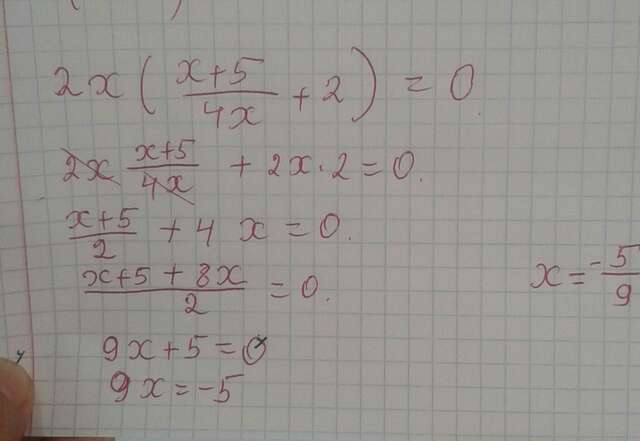 2x( (x+5)/(4x) + 2 ) = 0.
2x (x+5)/(4x) + 2x·2 = 0.
(x+5)/2 + 4 x = 0.
(x+5 + 8x)/2 = 0.
x = -5/9
9x+5 = 0
9x = -5